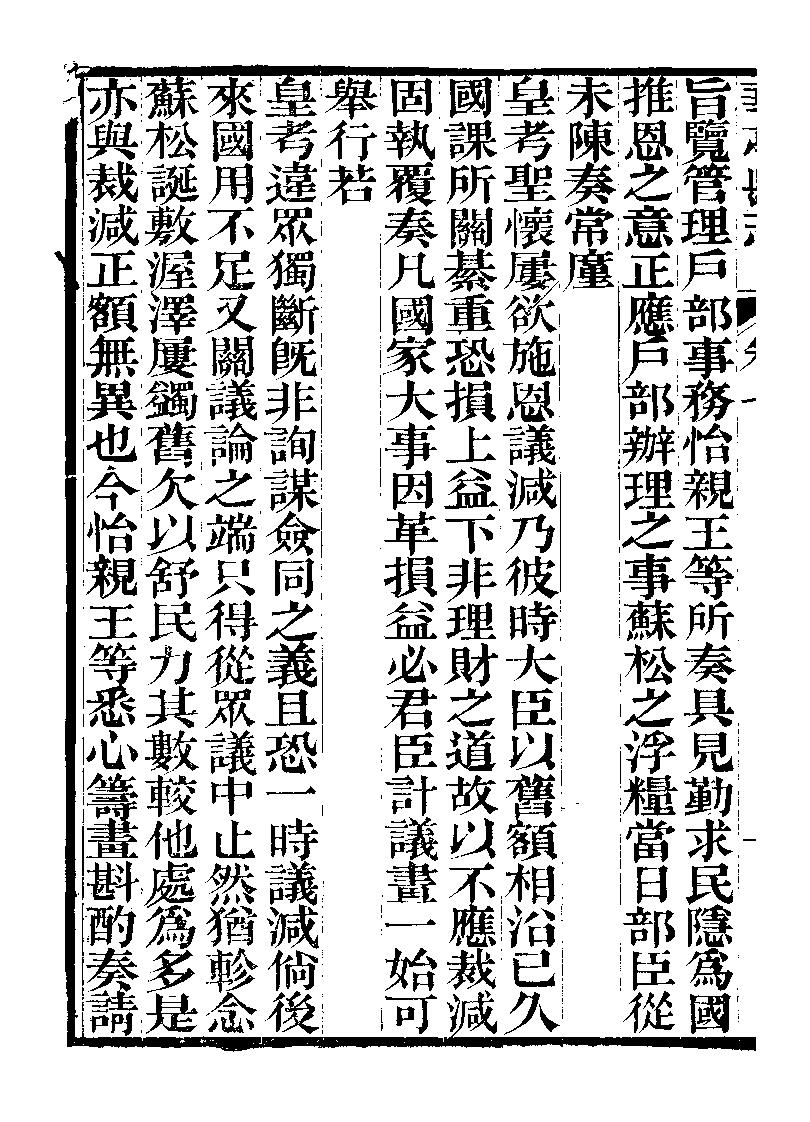 旨覽管理戶部事務怡親王等所奏具見勤求民隱爲國
推恩之意正應戶部辦理之事蘇松之浮糧當日部臣從
未陳奏常廑
皇考聖懷屢欲施恩議減乃彼時大臣以舊額相沿已久
國課所關綦重恐損上益下非理財之道故以不應裁減
固執覆奏凡國家大事因革損益必君臣計議畫一始可
舉行若
皇考違眾獨斷旣非詢謀僉同之義且恐一時議減倘後
來國用不足又關議論之端只得從眾議中止然猶軫念
蘇松誕敷渥澤屢蠲舊欠以舒民力其數較他處爲多是
亦與裁減正額無異也今怡親王等悉心籌畫斟酌奏請